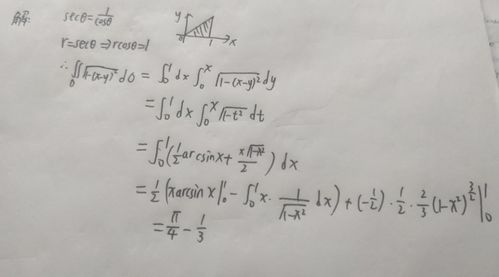 解: secθ = 1/cosθ
y
r=secθ ⇒ rcosθ=1
0 1 x
∴ ∬_D √(1-(x-y)²) dσ = ∫₀¹ dx ∫₀ˣ √(1-(x-y)²) dy
= ∫₀¹ dx ∫₀ˣ √(1-t²) dt
= ∫₀¹ (1/2 arcsinx + x√(1-x²)/2) dx
= 1/2 (xarcsin x|₀¹ - ∫₀¹ x · 1/√(1-x²) dx) + (-1/2) · 1/2 · 2/3 (1-x²)^(3/2) |₀¹
= π/4 - 1/3